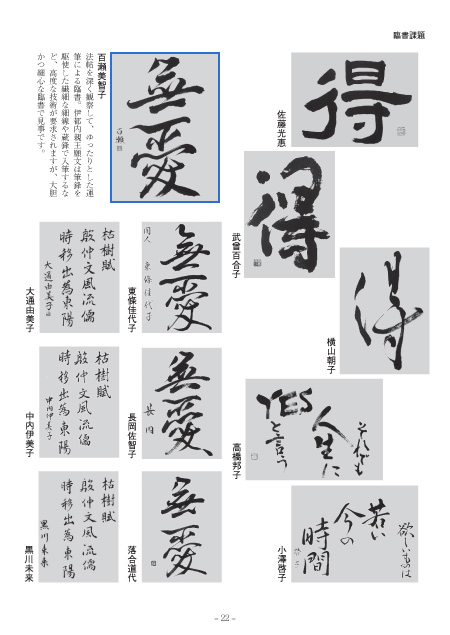 臨書課題
得
佐藤光恵
得
武曾百合子
得
横山朝子
それでも
人生に
YESと
言う
高橋邦子
欲しいものは
若い
今の
時間
小澤啓子
百瀬美智子
法帖を深く観察して、ゆったりとした運
筆による臨書。伊都内親王願文は筆鋒を
駆使した繊細な細線や蔵鋒で入筆するな
ど、高度な技術が要求されますが、大胆
かつ細心な臨書で見事です。
無
愛
百瀬
無
愛
同人 東條佳代子
東條佳代子
無
愛
長岡
長岡佐智子
無
愛
落合道代
枯樹賦
殷仲文風流儒
時移出為東陽
大通由美子
大通由美子
枯樹賦
殷仲文風流儒
時移出為東陽
中内伊美子
中内伊美子
枯樹賦
殷仲文風流儒
時移出為東陽
黒川未来
黒川未来
– 22 –